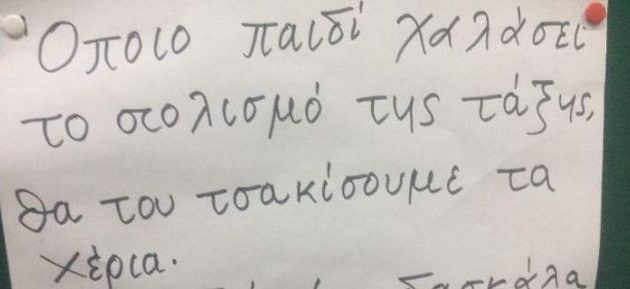 Οποιο παιδί χαλάσει
το στολισμό της τάξης,
θα του τσακίσουμε τα
χέρια.
δασκάλα